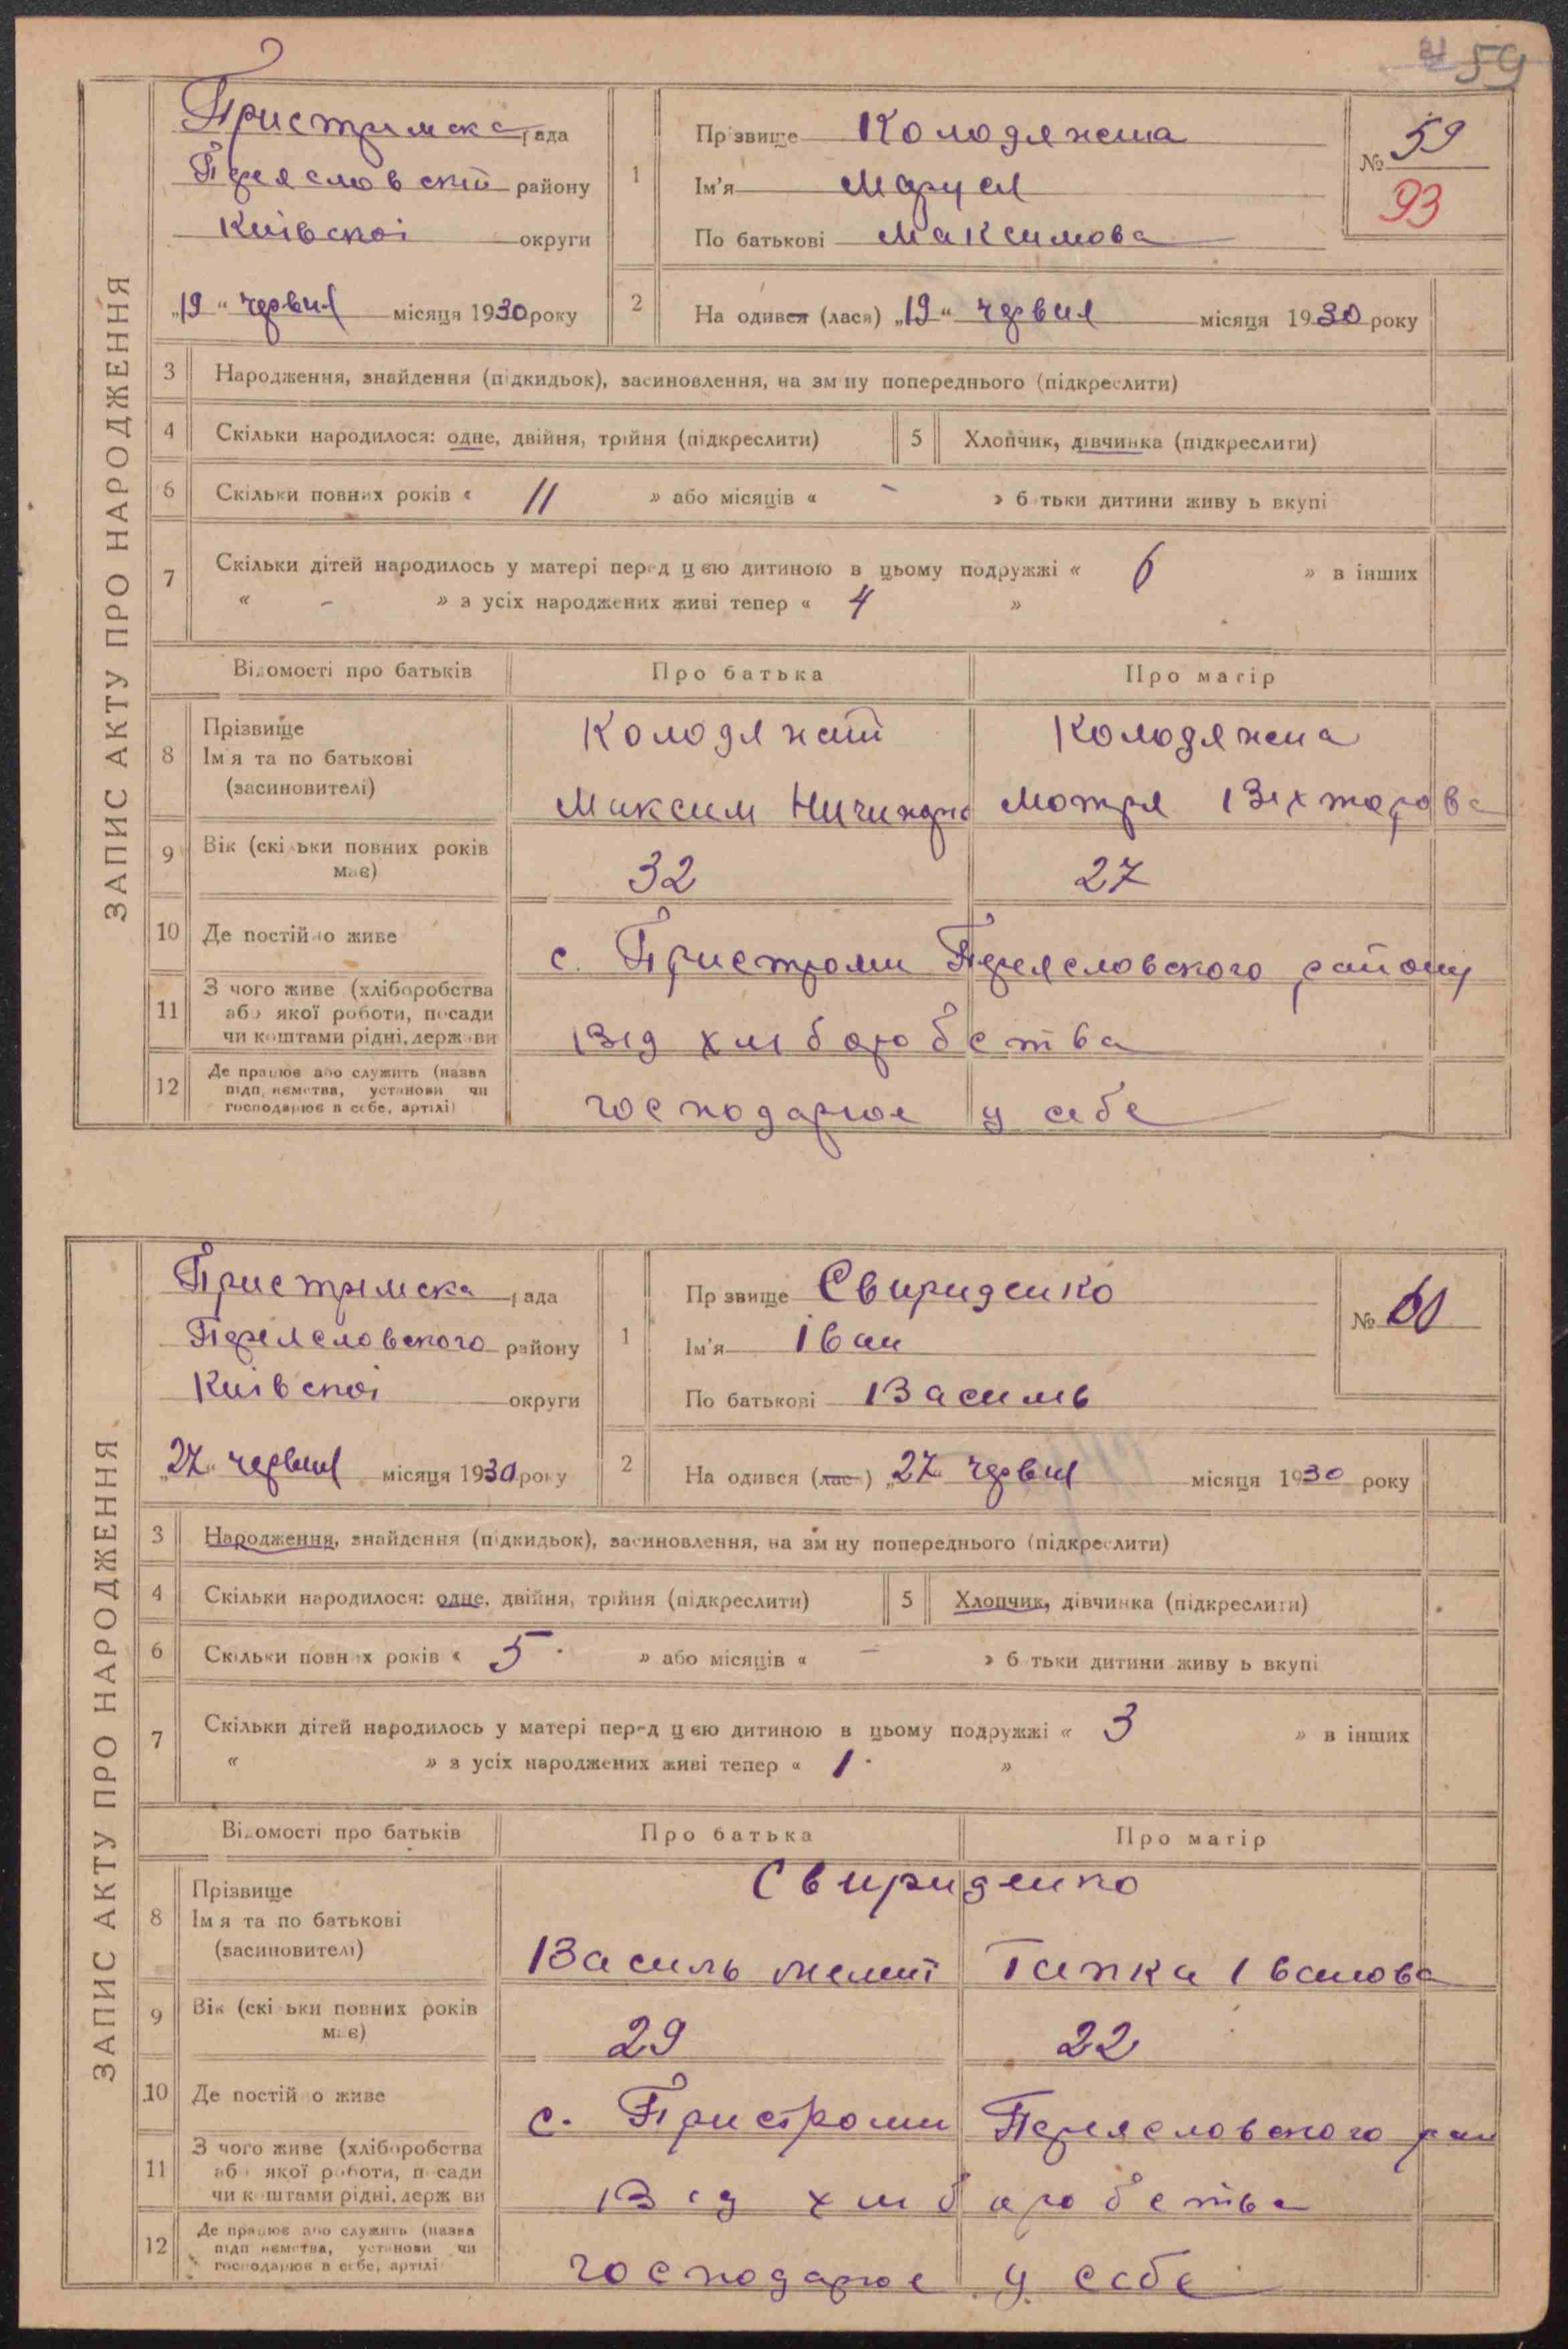 59
ЗАПИС АКТУ ПРО НАРОДЖЕННЯ
Пристрімска рада
Переяслов ский району
Київскої округи
„19“ червня місяця 1930 року
1
Прізвище Колодяжна
Ім'я Маруся
По батькові Максимова
№ 59
93
2
На одився (лася) „19“ червня місяця 1930 року
3 Народження, знайдення (підкидьок), засиновлення, на зм ну попереднього (підкреслити)
4 Скільки народилося: одне, двійня, трійня (підкреслити)
5 Хлопчик, дівчинка (підкреслити)
6 Скільки повних років « 11 » або місяців « - » б тьки дитини живу ь вкупі
7 Скільки дітей народилось у матері перед ц ею дитиною в цьому подружжі « 6 » в інших
« - » з усіх народжених живі тепер « 4 »
Відомості про батьків
Про батька
Про матір
8 Прізвище
Ім я та по батькові
(засиновителі)
Колодяжний
Максим
Колодяжна
Мотря
9 Вік (скі ьки повних років
має)
32
27
10 Де постійно живе
с. Пристроми Переясловского району
11 З чого живе (хліборобства
або якої роботи, посади
чи коштами рідні, держави
Від хліборобства
12 Де працює або служить (назва
підп иємства, установи чи
господарює в себе, артілі)
господарює у себе
ЗАПИС АКТУ ПРО НАРОДЖЕННЯ
Пристрімска рада
Переясловского району
Київскої округи
„27“ червня місяця 1930 року
1
Пр звище Свириденко
Ім'я Іван
По батькові Василь
№ 60
2
На одився (лас ) „27 червня місяця 1930 року
3 Народження, знайдення (підкидьок), засиновлення, на зм ну попереднього (підкреслити)
4 Скільки народилося: одне, двійня, трійня (підкреслити)
5 Хлопчик, дівчинка (підкреслити)
6 Скільки повн х років « 5 » або місяців « - » б тьки дитини живу ь вкупі
7 Скільки дітей народилось у матері перед ц ею дитиною в цьому подружжі « 3 » в інших
« » з усіх народжених живі тепер « 1 »
Відомості про батьків
Про батька
Про матір
8 Прізвище
Ім я та по батькові
(засиновителі)
Свириденко
Василь
Гапка Іванова
9 Вік (скі ьки повних років
має)
29
22
10 Де постій о живе
с. Пристроми Переясловского рай
11 З чого живе (хліборобства
або якої роботи, посади
чи коштами рідні, держ ви
Від хліборобства
12 Де працює або служить (назва
підп иємства, установи чи
господарює в себе, артілі
господарює у себе